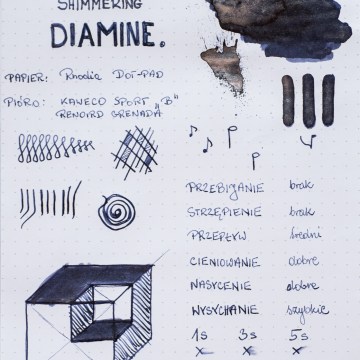 SHIMMERING
DIAMINE.
PAPIER: Rhodia DOT-PAD
PIÓRO: KAWECO SPORT „B"
RENOIRD GRENADA
PRZEBIJANIE brak
STRZĘPIENIE brak
PRZEPŁYW średni
CIENIOWANIE dobre
NASYCENIE dobre
WYSYCHANIE szybkie
1s 3s 5s